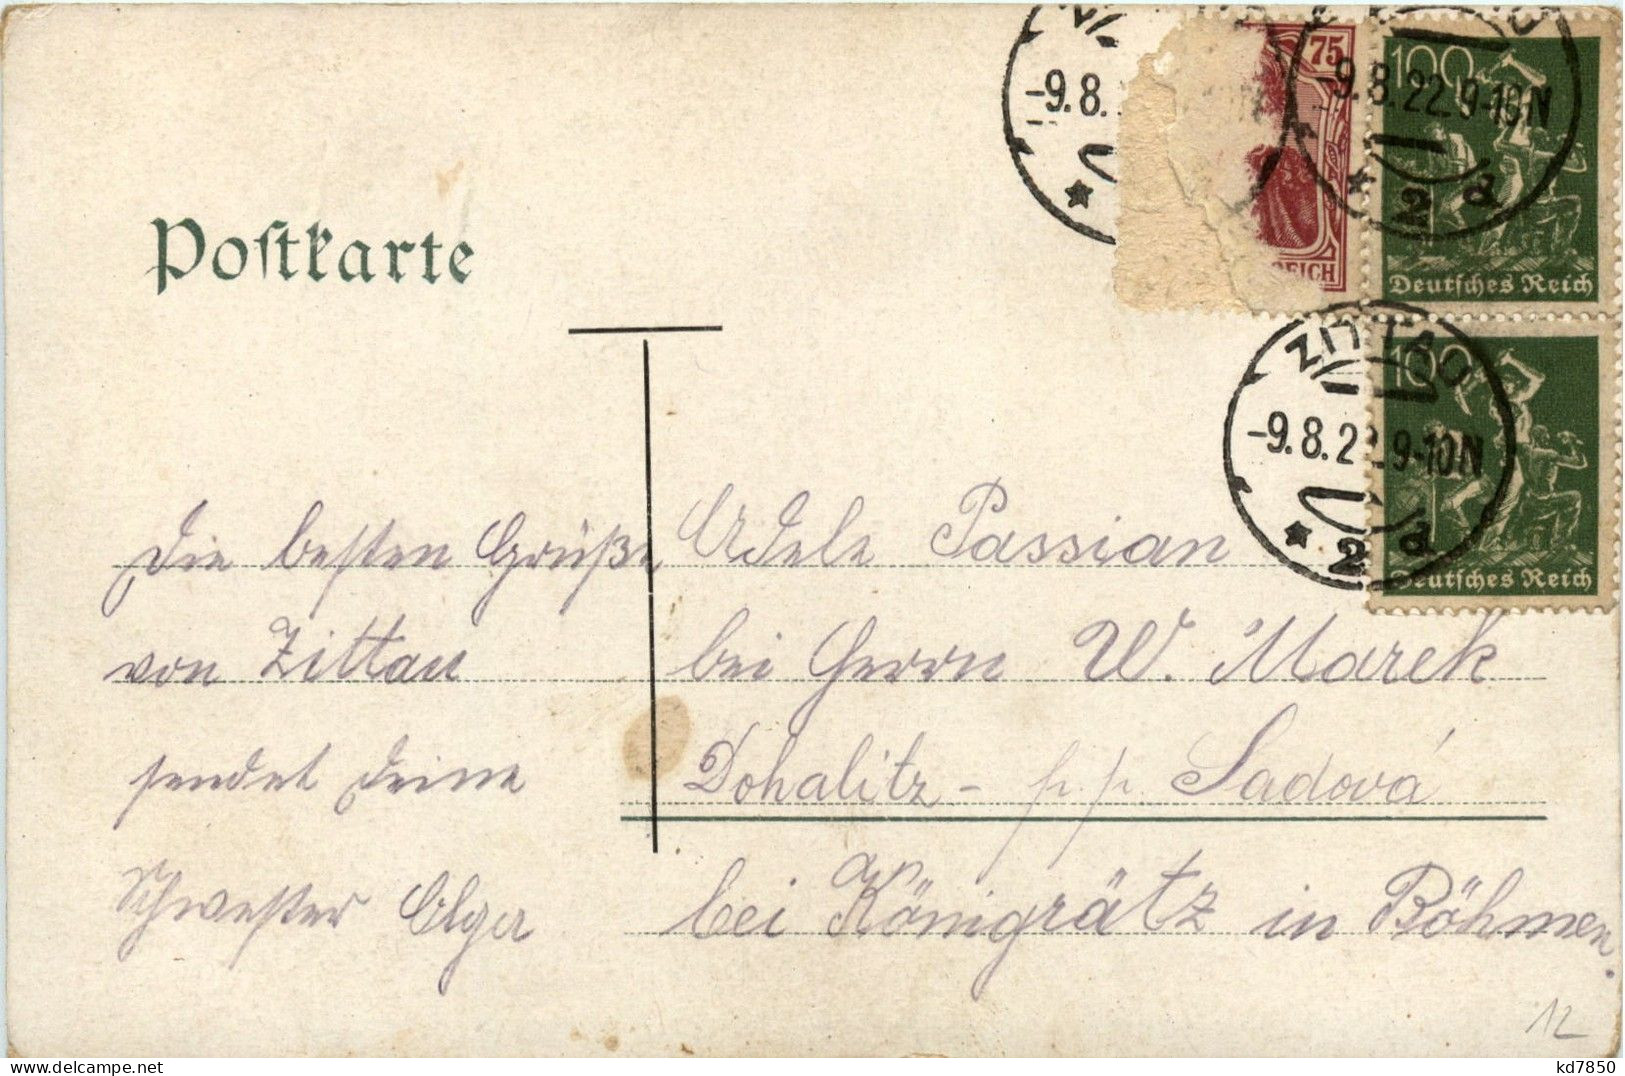 Postkarte
75
REICH
100
Deutsches Reich
-9.8.
-9.8.22.9-10N
* 2 a
ZITTAU
100
-9.8.22.9-10N
* 2 a
Deutsches Reich
Die besten Grüße
von Zittau
sendet Deine
Schwester Olga
Adele Passian
bei Herrn W. Marek
Dohalitz - p.p. Sadová
bei Königrätz in Böhmen.
12
kd7850